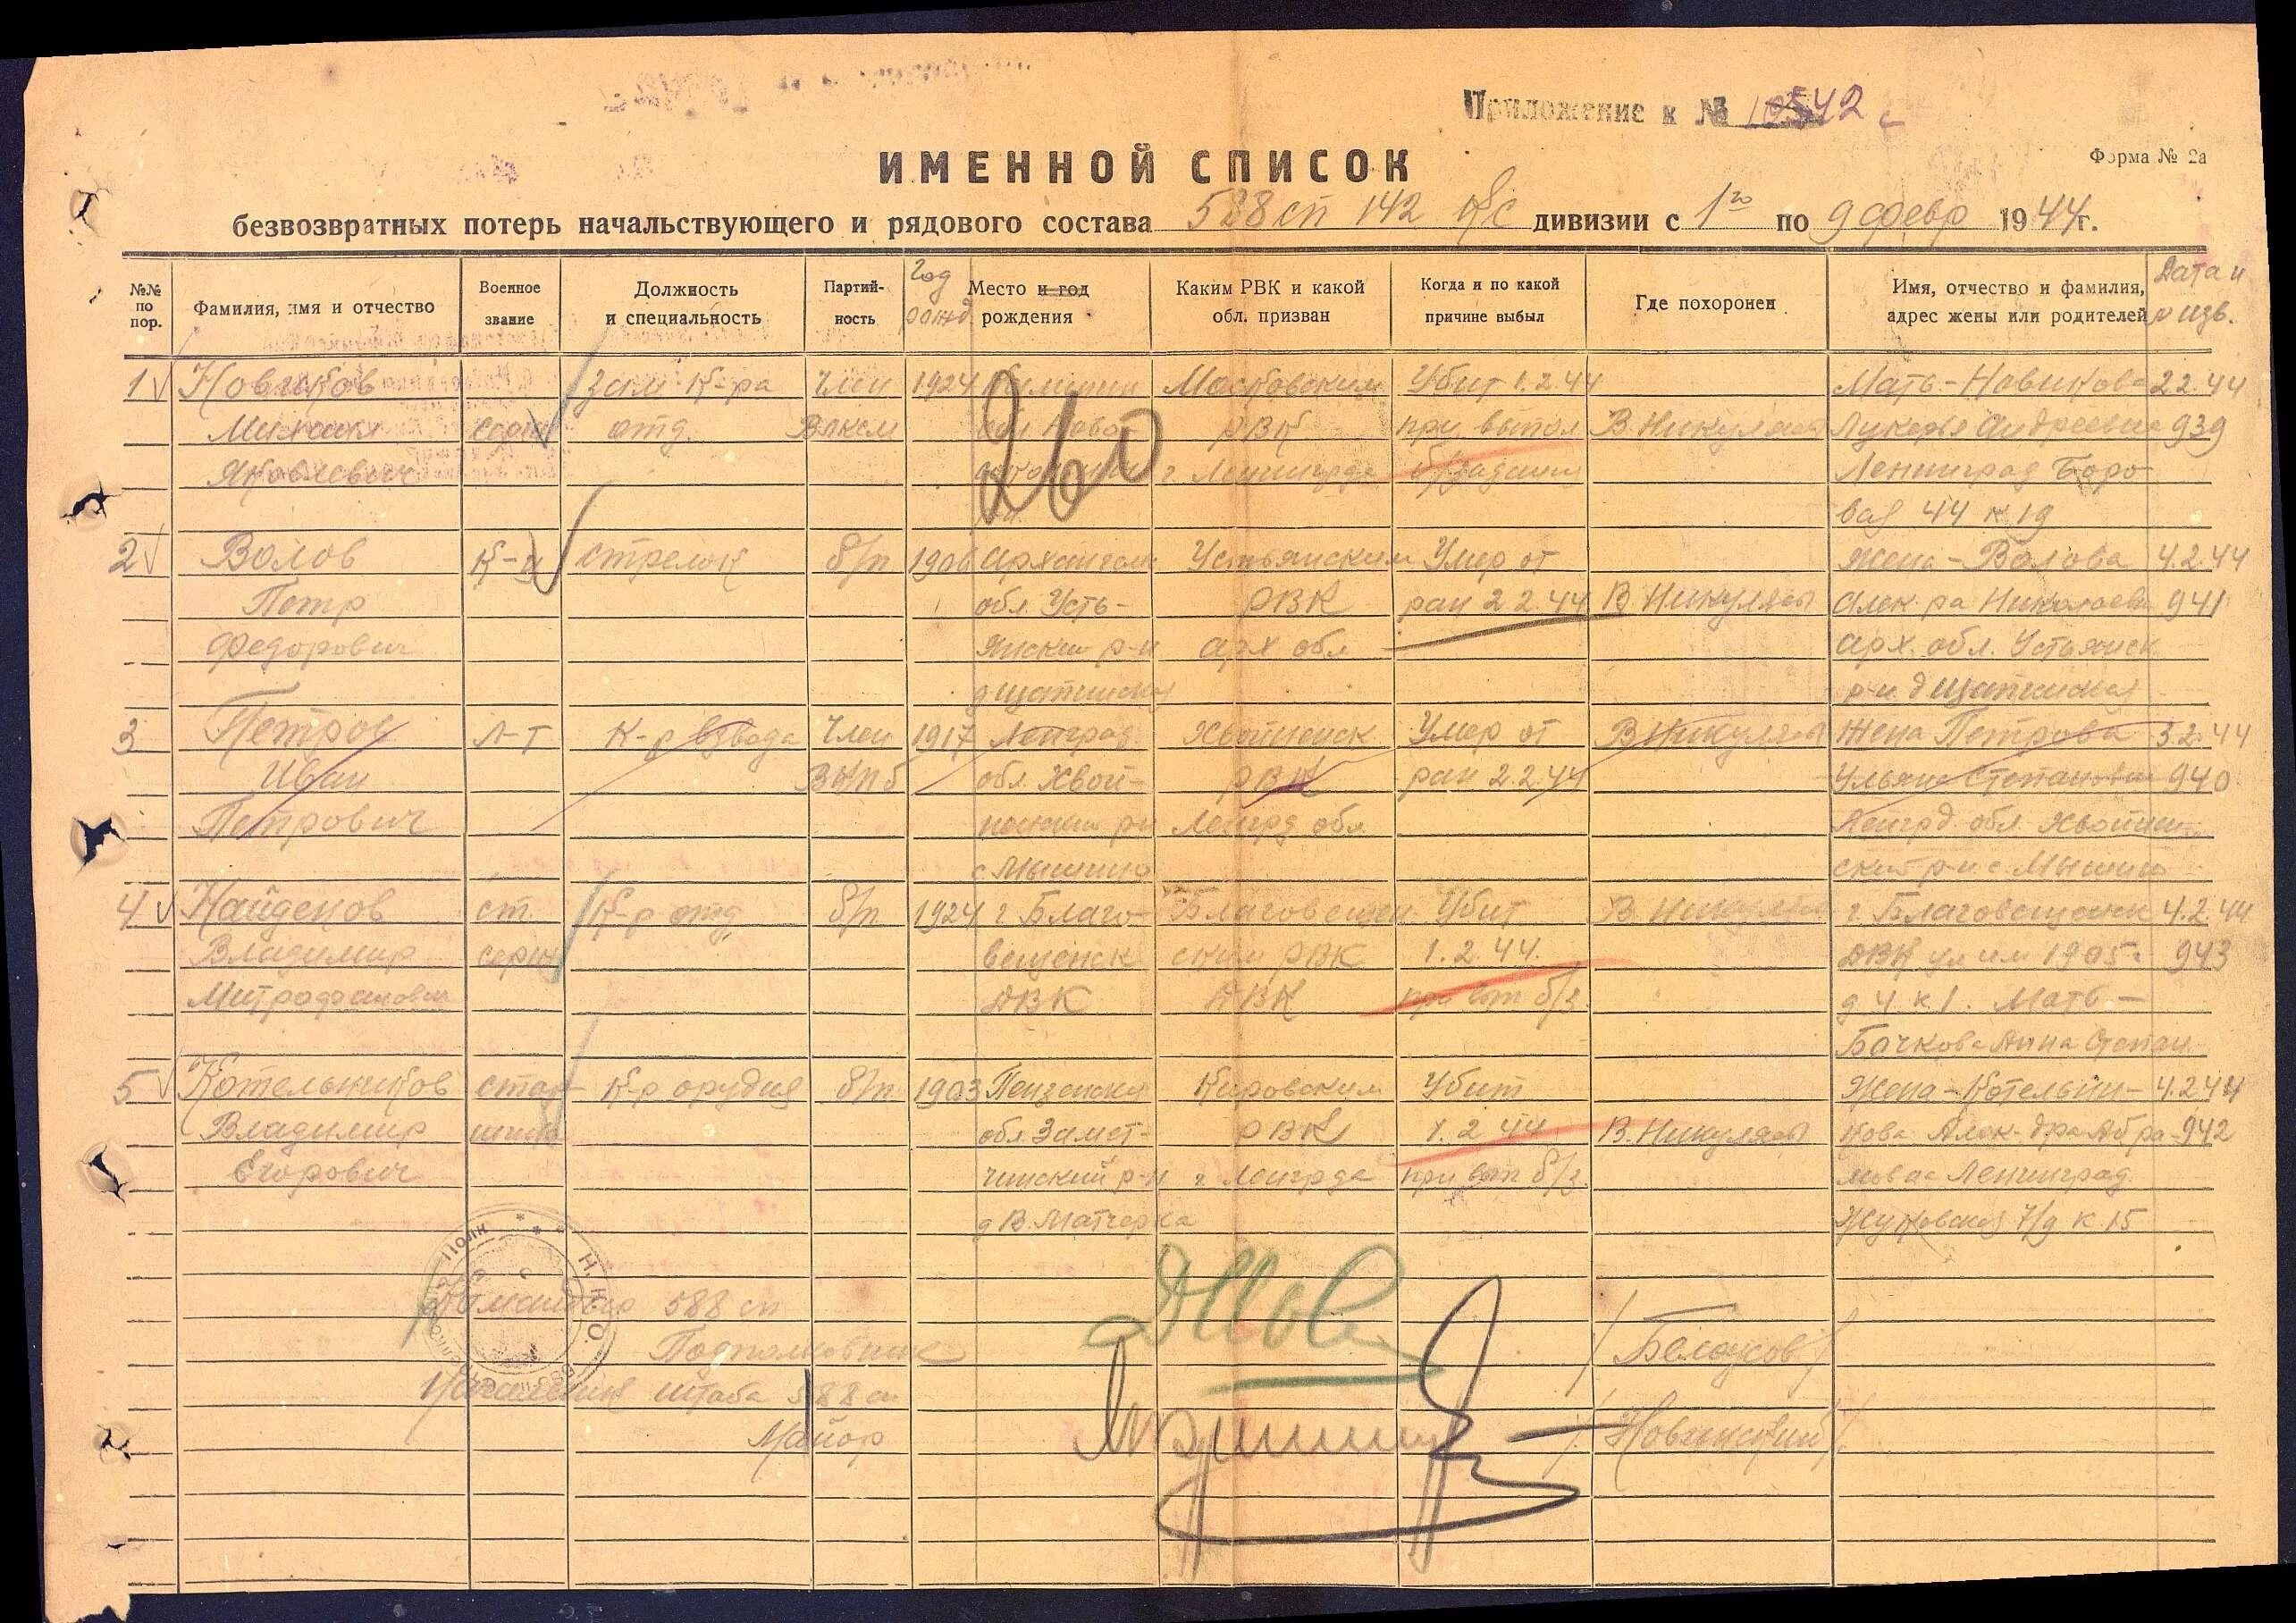 Приложение к № 10542 с
ИМЕННОЙ СПИСОК
Форма № 2а
безвозвратных потерь начальствующего и рядового состава 588 сп 142 дивизии с 1го по 9 февр 1944г.
№№ по пор.
Фамилия, имя и отчество
Военное звание
Должность и специальность
Партий-ность
Год рожд.
Место и год рождения
Каким РВК и какой обл. призван
Когда и по какой причине выбыл
Где похоронен
Имя, отчество и фамилия, адрес жены или родителей
Дата и № изв.
1 Новиков зам к-ра член 1924 Московским Убит 1.2.44 Мать-Новикова 2.2.44
Михаил серж отд. Влксм РВК при выпол В. Никулясы Лукерья Андреевна 939
Яковлевич г Ленинграда б/задания Ленинград Боро
вая 44 к 19
260
2 Волов к-ц стрелок б/п 1906 Архангел Устьянским Умер от Жена-Волова 4.2.44
Петр обл. Усть- РВК ран 2 2 44 В Никулясы Алек-ра Николаевн 941
Федорович янский р-н Арх обл Арх. обл. Устьянск
р-н д
3 Петров л-т К-р взвода Член 1917 Ленград Хвойненск Умер от В Никулясы Жена Петрова 3.2.44
Иван ВКПб обл. Хвой- РВК ран 2.2.44 Ульяна Степановна 940
Петрович ненский р-н Ленгрд обл Ленгрд. обл. Хвойнен
с Мышино ский р-н с. Мышино
4 Найденов ст. К-р отд б/п 1924 г Благо- Благовещен Убит В. Никулясы г. Благовещенск 4.2.44
Владимир серж вещенск ским РВК 1.2 44. ДВК ул им 1905 г 943
Митрофанович ДВК ДВК при вып б/з. д 4 к 1. Мать-
Бочкова Анна Степан
5 Котельников стар- К-р орудия б/п 1903 Пензенская Кировским Убит Жена-Котельни- 4.2.44
Владимир шина обл Замет- РВК 1.2 44 В. Никулясы кова Алек-дра Абра- 942
Егорович чинский р-н г. Ленгрда при вып б/з. мовна Ленинград
д В. Матчерка Жуковская 7/9 к 15
Н.К.О.
полк
Командир 588 сп
Подполковник /Белоусов/
Начальник штаба 588 сп
Майор /Новинский/